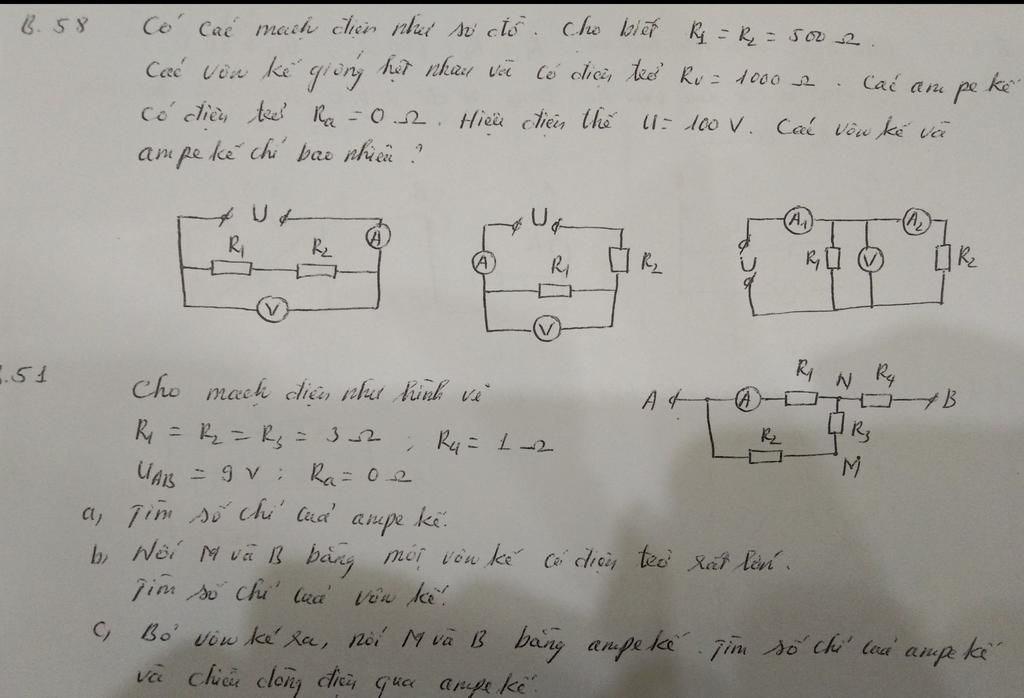 B.58 Có các mạch điện như sơ đồ. Cho biết R₁ = R₂ = 500 Ω.
Các vôn kế giống hệt nhau và có điện trở Rv = 1000 Ω. Các ampe kế
có điện trở Ra = 0 Ω. Hiệu điện thế U = 100 V. Các vôn kế và
ampe kế chỉ bao nhiêu ?
U A R₁ R₂ V
U A R₁ R₂ V
A₁ A₂ U R₁ V R₂
.51 Cho mạch điện như hình vẽ
R₁ = R₂ = R₃ = 3 Ω ; R₄ = 1 Ω
U_AB = 9 V ; Ra = 0 Ω
A A R₁ N R₄ B
R₂ R₃ M
a, Tìm số chỉ của ampe kế.
b, Nối M và B bằng một vôn kế có điện trở rất lớn.
Tìm số chỉ của vôn kế.
c, Bỏ vôn kế ra, nối M và B bằng ampe kế. Tìm số chỉ của ampe kế
và chiều dòng điện qua ampe kế.